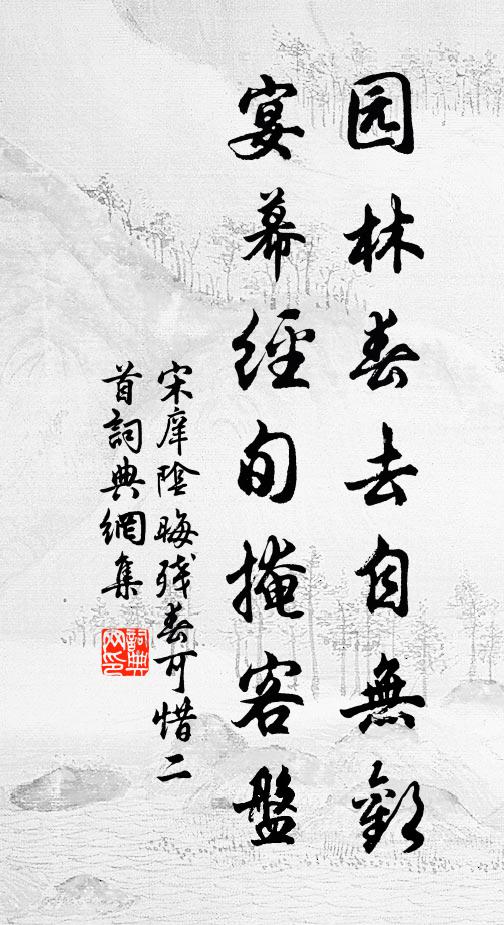 园林春去自無歡
宴幕經旬掩客盤
宋庠陰晦殘春可惜二
首詞典網集
詞典网印